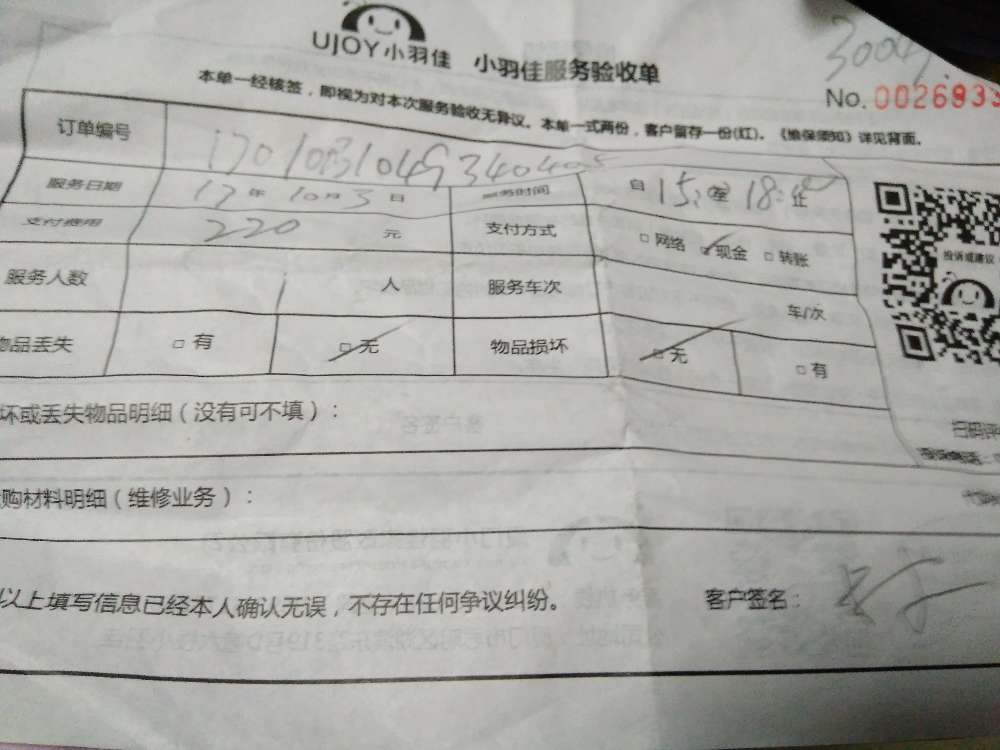 UJOY小羽佳 小羽佳服务验收单
3004
No. 0026933
本单一经核签，即视为对本次服务验收无异议。本单一式两份，客户留存一份(红)。《维保须知》详见背面。
订单编号
服务日期 17 年 10 月 3 日 服务时间 自 15: 至 18: 止
支付费用 220 元 支付方式 □ 网络 ✓现金 □ 转账
服务人数 1 人 服务车次 车/次
物品丢失 □ 有 □ 无 物品损坏 □ 无 □ 有
投诉或建议
坏或丢失物品明细（没有可不填）：
扫码评
购材料明细（维修业务）：
以上填写信息已经本人确认无误，不存在任何争议纠纷。 客户签名：